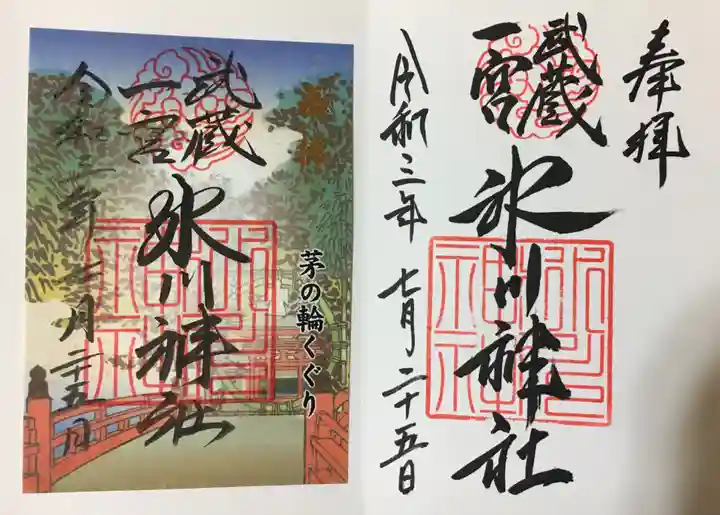 奉拝
武蔵
一宮
氷川神社
令和三年 七月二十五日
奉拝
茅の輪くぐり
武蔵
一宮
氷川神社
令和三年 七月二十五日